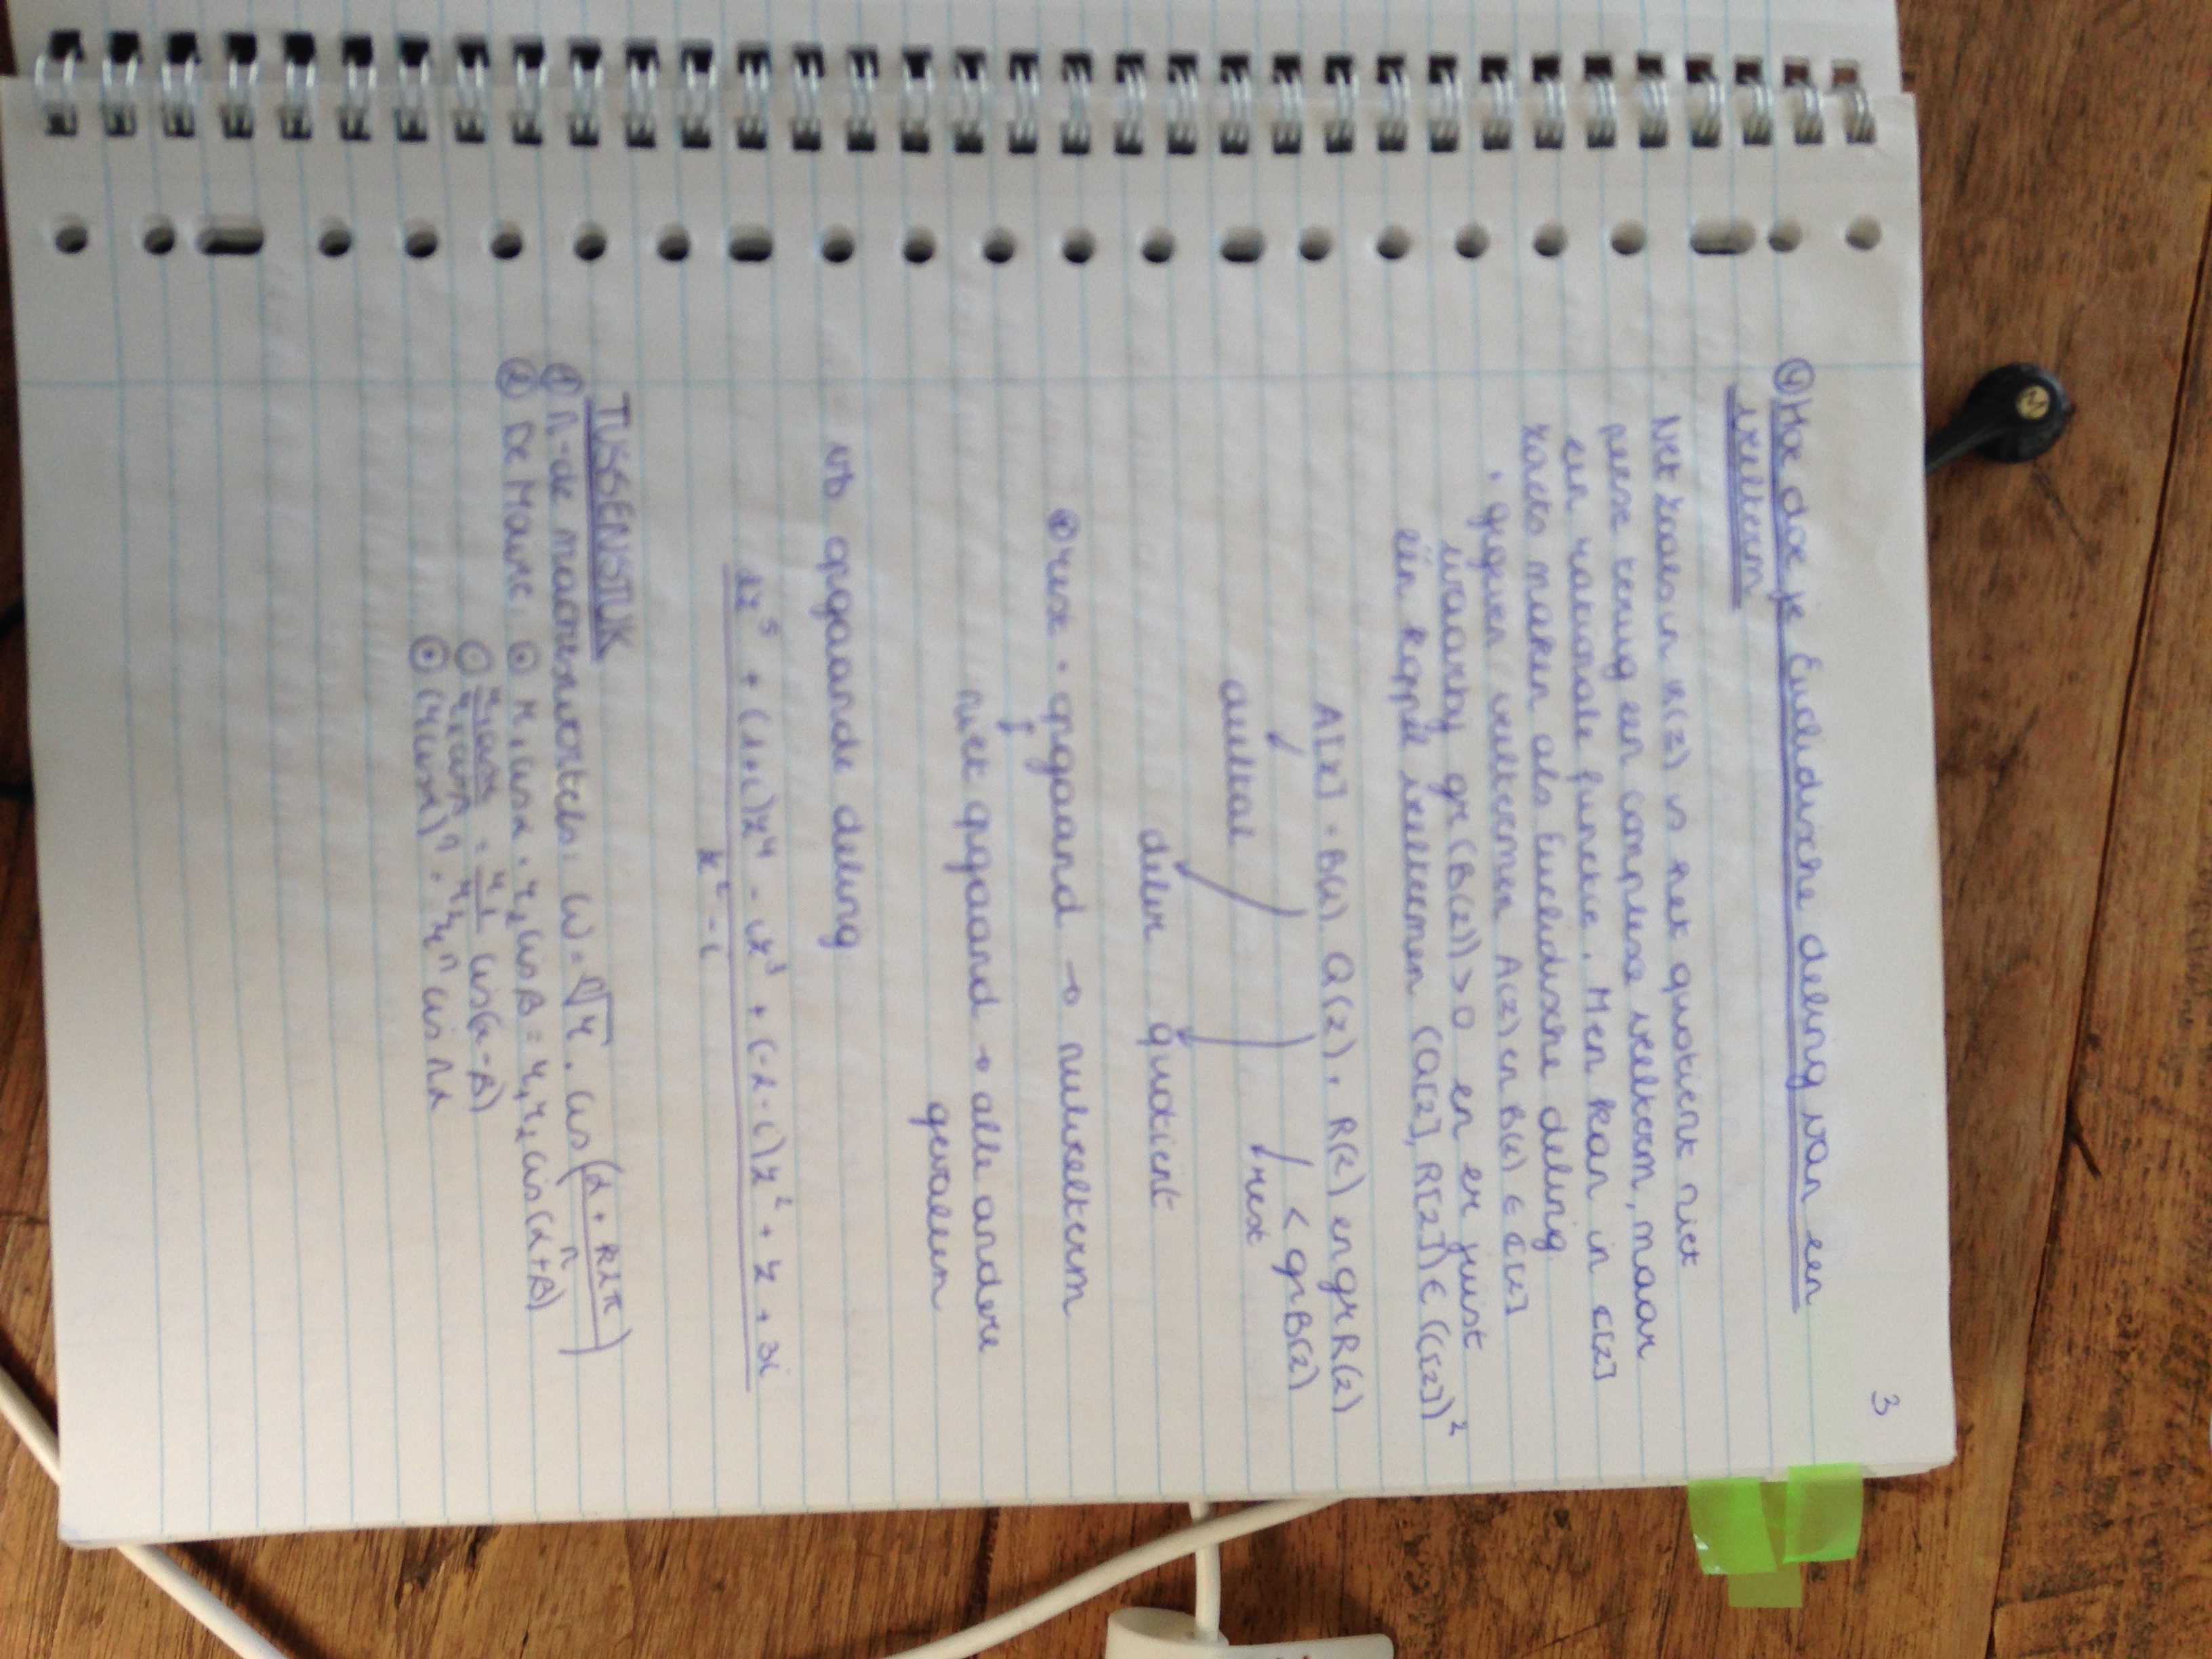 3
④ Hoe doe je Euclidische deling van een
veelterm
Net zoals in R(z) is het quotient niet
perse terug een complexe veelterm, maar
een rationale functie. Men kan in ℂ[z]
zoals maken als Euclidische deling
• gegeven veeltermen A(z) en B(z) ∈ ℂ[z]
waarbij gr(B(z)) > 0 en er juist
één koppel veeltermen (Q[z], R[z]) ∈ (ℂ[z])²
A[z] = B(z). Q(z) + R(z) en gr R(z)
< gr B(z)
rest
deeltal
deler quotient
rest = opgaand → nulveelterm
↕
niet opgaand → alle andere
gevallen
vb opgaande deling
z⁵ + (1+i)z⁴ - iz³ + (-2-i)z² + z + 3i
z² - i
TUSSENSTUK
① n-de machtswortels: ω = ⁿ√r . cis (α + k2π / n)
② De Moivre: ⊙ r₁ cis α . r₂ cis β = r₁ r₂ cis (α+β)
⊙ r₁ cis α / r₂ cis β = r₁ / r₂ cis(α-β)
⊙ (r cis α)ⁿ = rⁿ cis nα